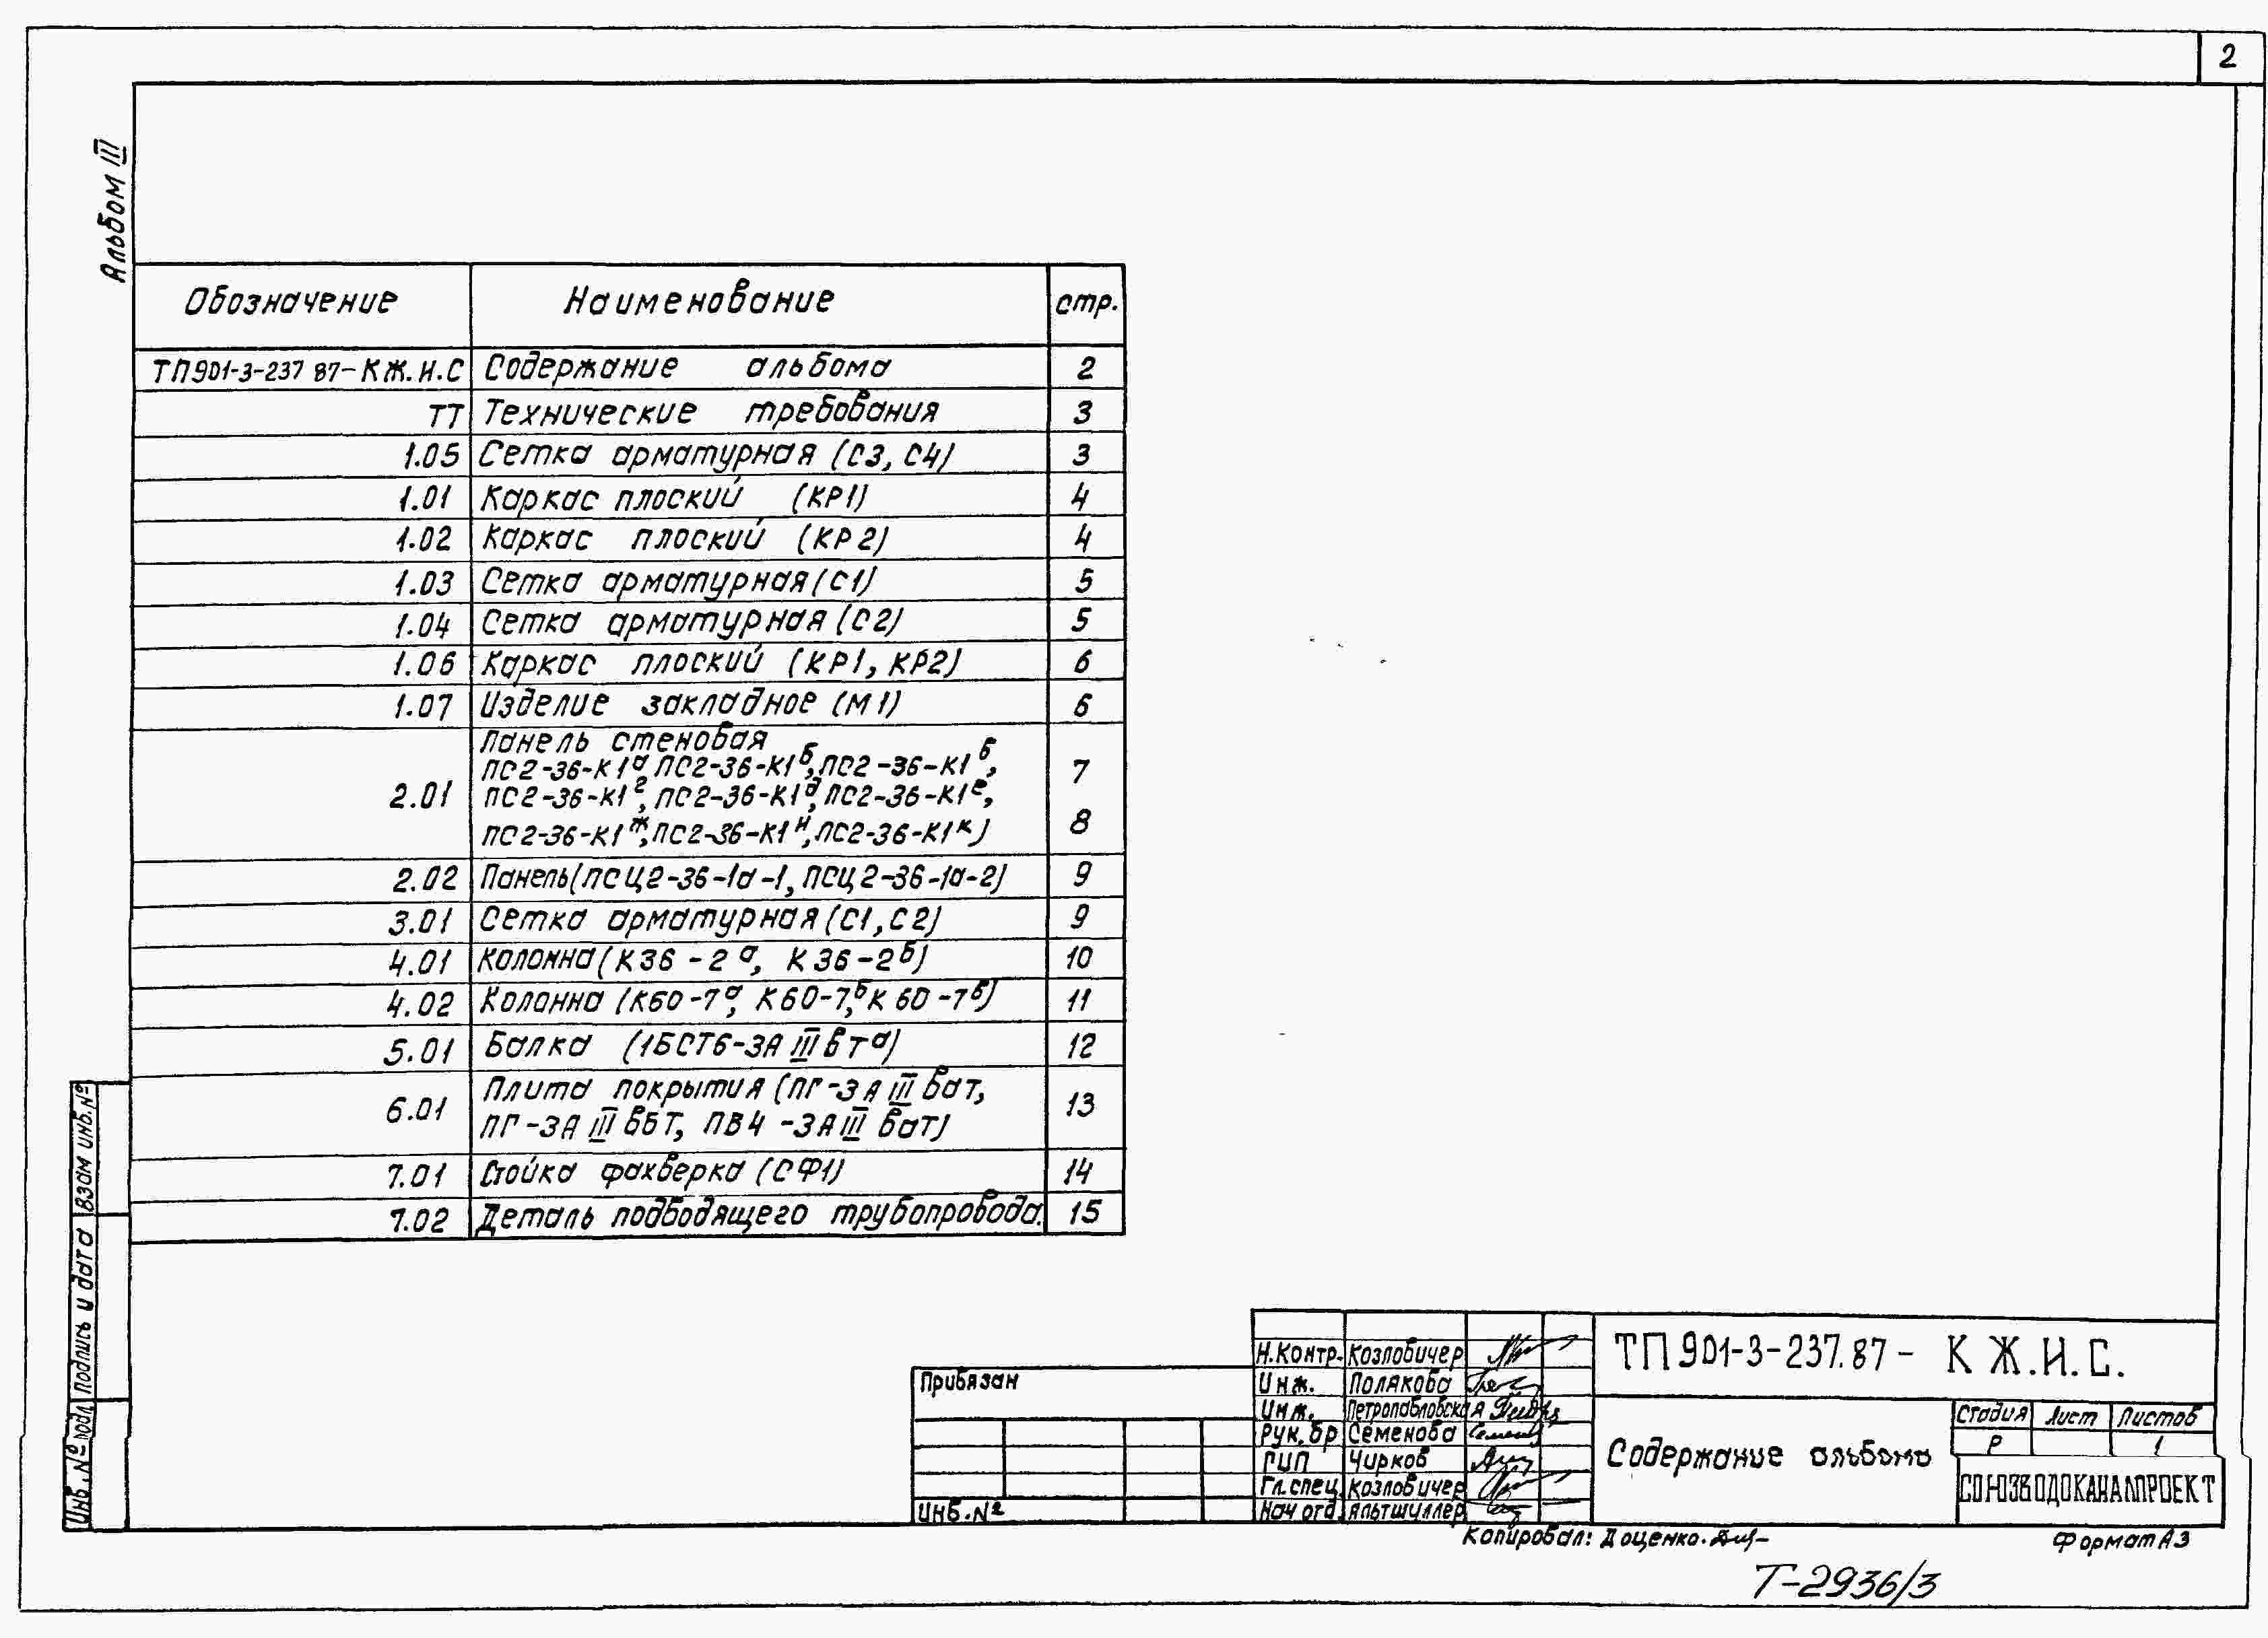 2
Альбом III
Обозначение Наименование стр.
ТП901-3-237 87-КЖ.И.С Содержание альбома 2
ТТ Технические требования 3
1.05 Сетка арматурная (С3, С4) 3
1.01 Каркас плоский (КР1) 4
1.02 Каркас плоский (КР2) 4
1.03 Сетка арматурная (С1) 5
1.04 Сетка арматурная (С2) 5
1.06 Каркас плоский (КР1, КР2) 6
1.07 Изделие закладное (М1) 6
Панель стеновая
ПС2-36-К1а, ПС2-36-К1б, ПС2-36-К1в, 7
2.01 ПС2-36-К1г, ПС2-36-К1д, ПС2-36-К1е,
ПС2-36-К1ж, ПС2-36-К1и, ПС2-36-К1к) 8
2.02 Панель (ПСЦ2-36-1а-1, ПСЦ2-36-1а-2) 9
3.01 Сетка арматурная (С1, С2) 9
4.01 Колонна (К36-2а, К36-2б) 10
4.02 Колонна (К60-7а, К60-7б, К60-7в) 11
5.01 Балка (1БСТ6-3АIIIвта) 12
6.01 Плита покрытия (ПГ-3АIIIваТ, 13
ПГ-3АIIIвбТ, ПВ4-3АIIIваТ)
7.01 Стойка фахверка (СФ1) 14
7.02 Деталь подводящего трубопровода. 15
Инв. № подл
Подпись и дата
Взам инв. №
Привязан
Инв. №
Н.Контр. Козловичер
Инж. Полякова
Инж. Петропавловская
Рук. бр Семенова
ГИП Чирков
Гл. спец. Козловичер
Нач отд. Альтшуллер
ТП 901-3-237.87- КЖ.И.С.
Содержание альбома
Стадия Лист Листов
Р 1
СОЮЗВОДОКАНАЛПРОЕКТ
Копировал: Доценко.
Формат А3
Т-2936/3